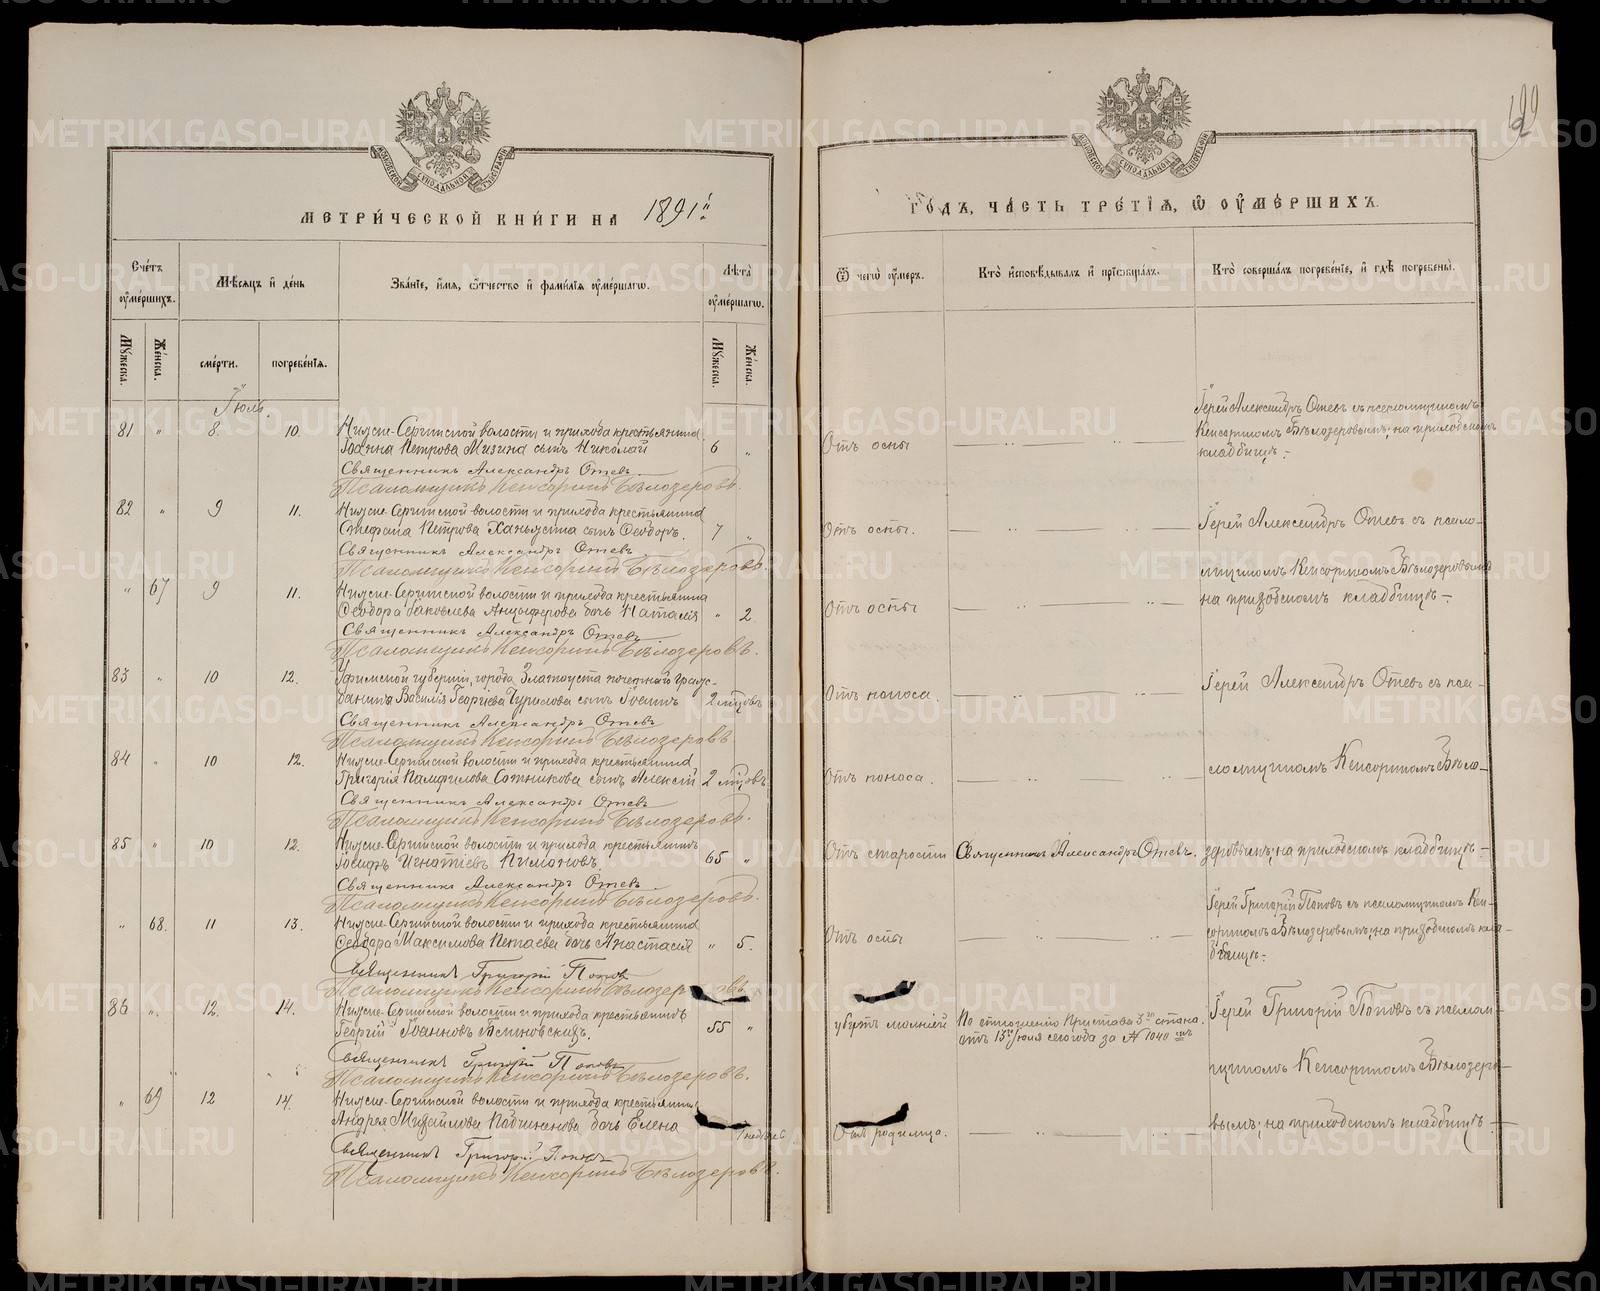 МЕТРИ́ЧЕСКОЙ КНИ́ГИ НА 1891й
Сче́тъ ѹ҆ме́ршихъ.
Мѣ́сѧцъ и҆ де́нь
Зва́нїе, и҆́мѧ, ѻ҆́тчество и҆ фами́лїѧ ѹ҆ме́ршагѡ.
Лѣ́та ѹ҆ме́ршагѡ.
Мꙋ́жеска.
Же́нска.
сме́рти.
погребе́нїѧ.
Мꙋ́жеска.
Же́нска.
Іюль.
81 " 8. 10. Нижне-Сергинской волости и прихода крестьянина
Іоанна Петрова Мизина сынъ Николай 6 "
Священникъ Александръ Отевъ
Псаломщикъ Кенсоринъ Бѣлозеровъ.
82 " 9 11. Нижне-Сергинской волости и прихода крестьянина
Стефана Петрова Ханжина сынъ Ѳеодоръ. 7 "
Священникъ Александръ Отевъ
Псаломщикъ Кенсоринъ Бѣлозеровъ.
" 67 9 11. Нижне-Сергинской волости и прихода крестьянина
Ѳеодора Іаковлева Анцыферова дочь Наталія " 2
Священникъ Александръ Отевъ
Псаломщикъ Кенсоринъ Бѣлозеровъ.
83 " 10 12. Уфимской губерніи, города Златоуста почетнаго граж-
данина Василія Георгіева Чурилова сынъ 2 мцовъ
Священникъ Александръ Отевъ
Псаломщикъ Кенсоринъ Бѣлозеровъ
84 " 10 12. Нижне-Сергинской волости и прихода крестьянина
Григорія Памфилова Сотникова сынъ Алексій 2 мцовъ
Священникъ Александръ Отевъ
Псаломщикъ Кенсоринъ Бѣлозеровъ.
85 " 10 12. Нижне-Сергинской волости и прихода крестьянинъ
Іосифъ Игнатіевъ Пимоновъ 65 "
Священникъ Александръ Отевъ
Псаломщикъ Кенсоринъ Бѣлозеровъ.
" 68. 11 13. Нижне-Сергинской волости и прихода крестьянина
Ѳеодора Максимова дочь Анастасія " 5.
Священникъ Григорій Поповъ
Псаломщикъ Кенсоринъ Бѣлозеровъ
86 " 12. 14. Нижне-Сергинской волости и прихода крестьянинъ
Георгій Іоанновъ 55 "
Священникъ Григорій Поповъ
Псаломщикъ Кенсоринъ Бѣлозеровъ.
" 69 12 14. Нижне-Сергинской волости и прихода крестьянина
Андрея Михайлова дочь Елена
Священникъ Григорій Поповъ
Псаломщикъ Кенсоринъ Бѣлозеровъ.
ГО́ДЪ, ЧА́СТЬ ТРЕ́ТІѦ, Ѡ҆ ОУ҆МЕ́РШИХЪ.
Ѿ чегѡ̀ ѹ҆́меръ.
Кто̀ и҆сповѣ́дывалъ и҆ прїѡбща́лъ.
Кто̀ соверша́лъ погребе́нїе, и҆ гдѣ̀ погребены̀.
Отъ оспы
Іерей Александръ Отевъ съ псаломщикомъ
Кенсориномъ Бѣлозеровымъ; на приходскомъ
кладбищѣ.
Отъ оспы.
Іерей Александръ Отевъ съ псало-
мщикомъ Кенсориномъ Бѣлозеровымъ
Отъ оспы
на приходскомъ кладбищѣ.
Отъ поноса.
Іерей Александръ Отевъ съ пса-
Отъ поноса.
ломщикомъ Кенсориномъ Бѣло-
Отъ старости Священникъ Александръ Отевъ. зеровымъ; на приходскомъ кладбищѣ
Іерей Григорій Поповъ съ псаломщикомъ Кен-
Отъ оспы
сориномъ Бѣлозеровымъ; на приходскомъ клад-
бищѣ.
убитъ молніей По отношенію Пристава 3го стана
отъ 13го Іюля сего года за № 1040
Іерей Григорій Поповъ съ псалом-
щикомъ Кенсориномъ Бѣлозеро-
Отъ родимца.
вымъ; на приходскомъ кладбищѣ
METRIKI.GASO-URAL.RU